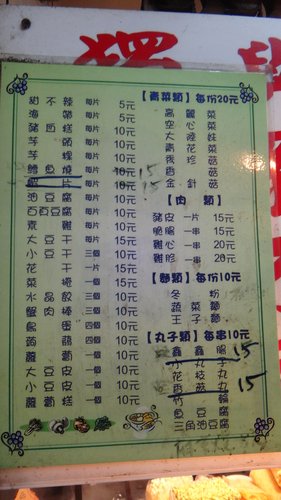 甜不辣 每片 5元
海帶 每片 5元
豬血糕 每片 10元
芋頭 每片 10元
芋粿 每片 10元
鱈魚燒 每片 10元 15
每片 10元 15
油豆腐 每片 10元
百頁豆腐 每片 10元
素雞 每片 10元
大豆干 每片 10元
小豆干 三個 10元
花干 一片 15元
菜捲 一個 15元
水晶餃 三個 10元
蟹肉棒 三個 10元
鳥蛋 四個 10元
蒟蒻 四個 10元
蘿蔔 一個 10元
大豆皮 一個 10元
小豆皮 一個 10元
蘿蔔糕 一個 10元
【青菜類】每份20元
高麗菜
空心菜
大陸妹
青花菜
秀珍菇
香菇
金針菇
【肉類】
豬皮 一片 15元
脆腸 一串 15元
雞心 一串 20元
雞胗 一串 20元
【麵類】每份10元
冬粉
蔬菜麵
王子麵
【丸子類】每串10元
鑫鑫腸 15
小丸子
花枝丸
香菇丸 15
竹輪
魚豆腐
三角油豆腐